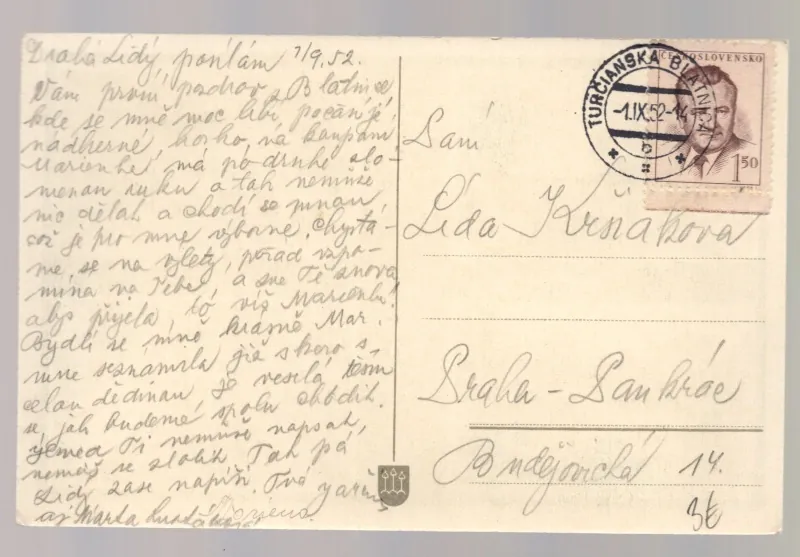 Drahá Lidy, posílám 1/9.52.
Vám první pozdrav z Blatnice
kde se mně moc líbí, počasí je
nádherné, horko, na koupání.
Marienka má po druhé zlo-
menou ruku a tak nemůže
nic dělat a chodí se mnou,
což je pro mne výborné. Chystá-
me se na výlety, pořád vzpo-
míná na Tebe, a zve Tě znova
abys přijela, to víš Marienka!
Bydlí se mně krásně Mar.
mne seznámila již skoro s
celou dědinou, je veselá
se, jak budeme spolu chodit.
Ti nemůže napsat,
nemáš se zlobit. Tak pá
Lidy zase napíši. Tvá
aj Marta
TURČIANSKA BLATNICA
-1.IX.52-14
ČESKOSLOVENSKO
1.50
Paní
Lída Krśńáková
Praha - Pankrác
Budějovická 14.
3€